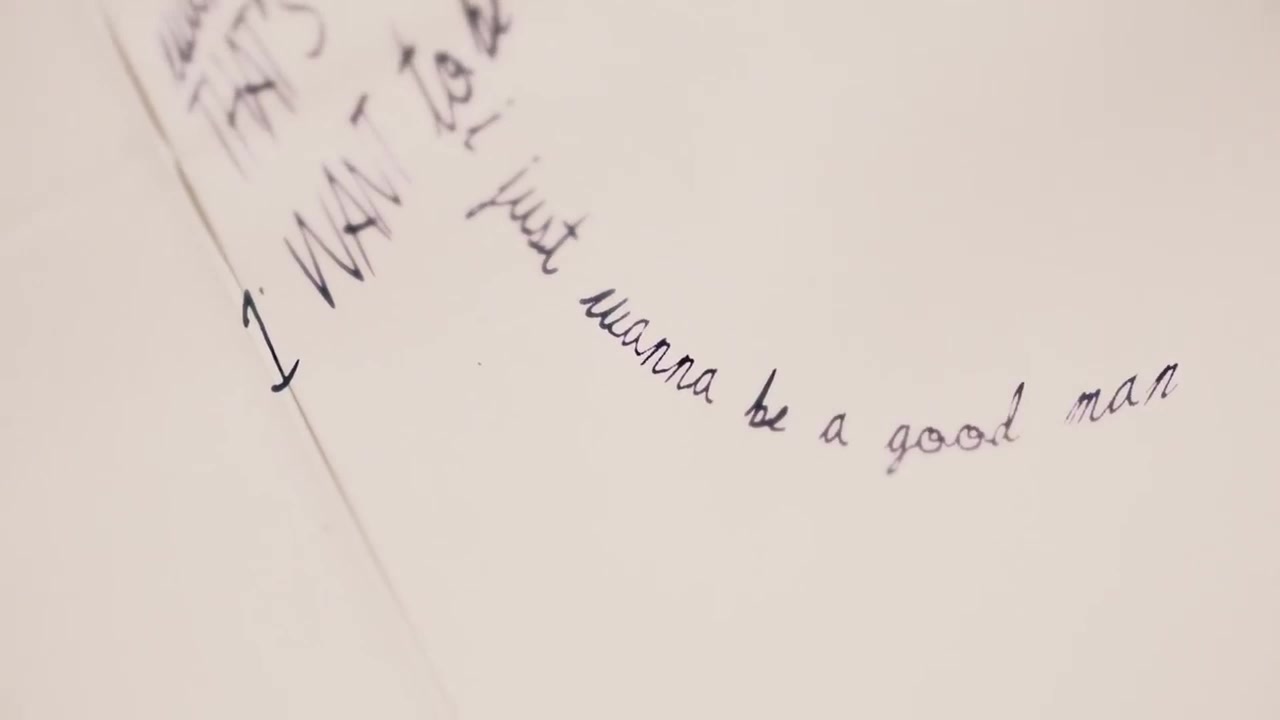 THAT'S
I WANT to
i just wanna be a good man